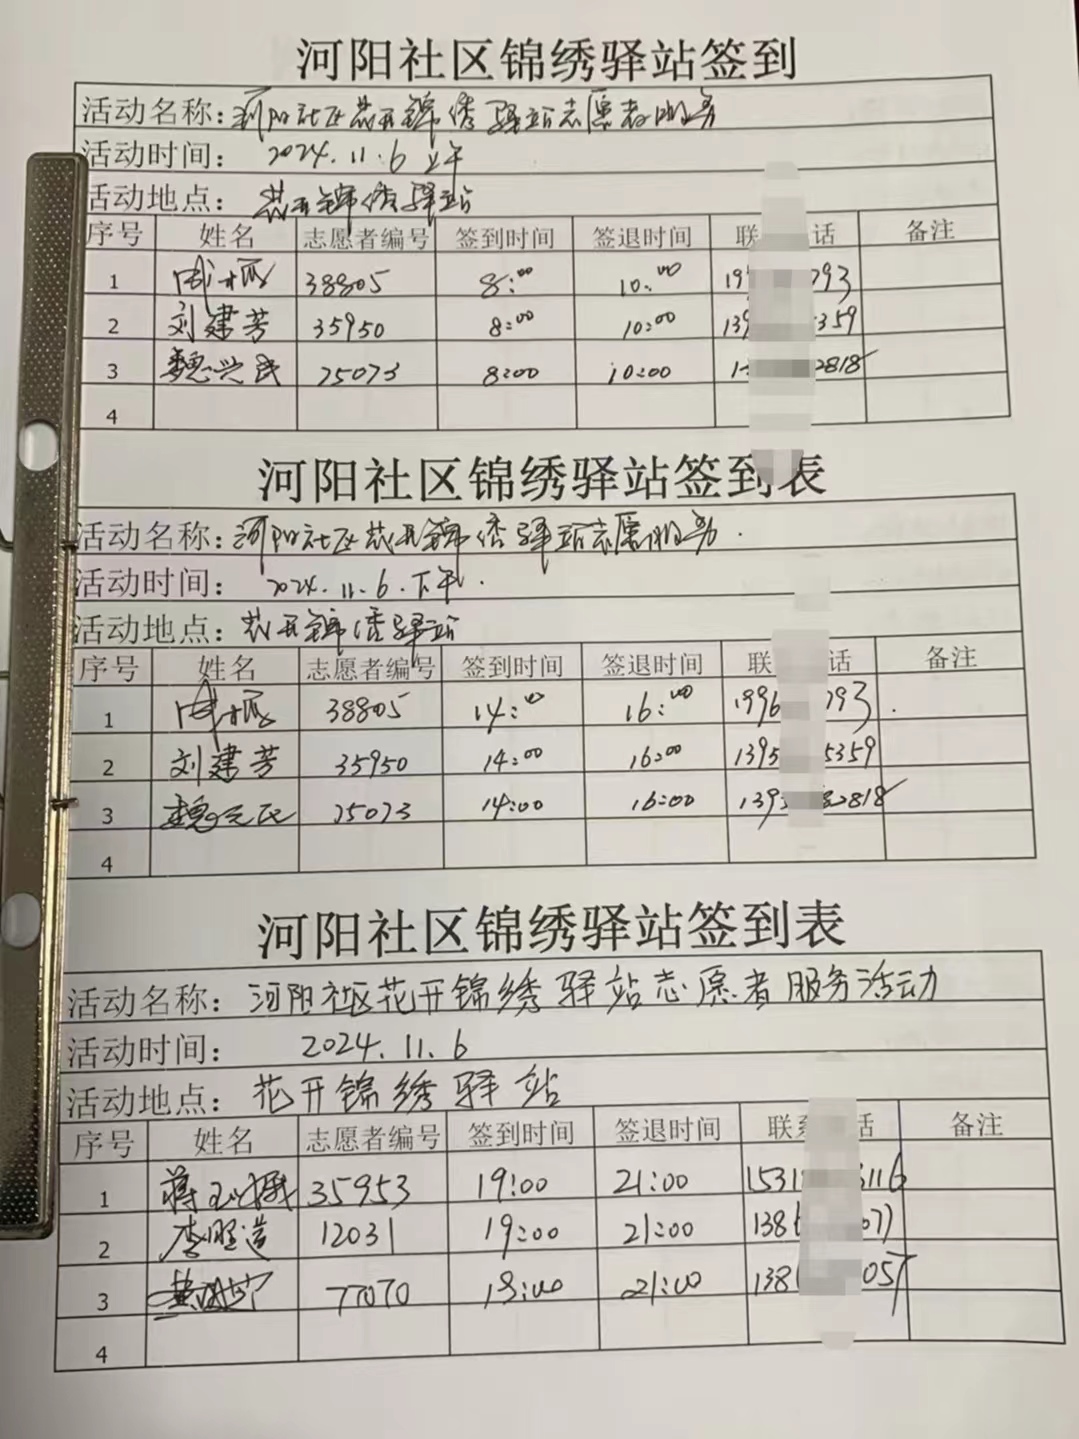 河阳社区锦绣驿站签到
活动名称：河阳社区花开锦绣驿站志愿者服务
活动时间： 2024.11.6 上午
活动地点： 花开锦绣驿站
序号 姓名 志愿者编号 签到时间 签退时间 联 话 备注
1 38805 8:00 10:00 199 793
2 刘建芳 35950 8:00 10:00 139 5359
3 魏兴民 25073 8:00 10:00 2818
4
河阳社区锦绣驿站签到表
活动名称：河阳社区花开锦绣驿站志愿服务.
活动时间： 2024.11.6.下午.
活动地点：花开锦绣驿站
序号 姓名 志愿者编号 签到时间 签退时间 联 话 备注
1 38805 14:00 16:00 1996 793
2 刘建芳 35950 14:00 16:00 1395 5359
3 魏兴民 25073 14:00 16:00 139 82818
4
河阳社区锦绣驿站签到表
活动名称：河阳社区花开锦绣驿站志愿者服务活动
活动时间： 2024.11.6
活动地点：花开锦绣驿站
序号 姓名 志愿者编号 签到时间 签退时间 联系 话 备注
1 蒋 35953 19:00 21:00 1531 6116
2 李 12031 19:00 21:00 138 077
3 黄 77070 19:00 21:00 138 057
4